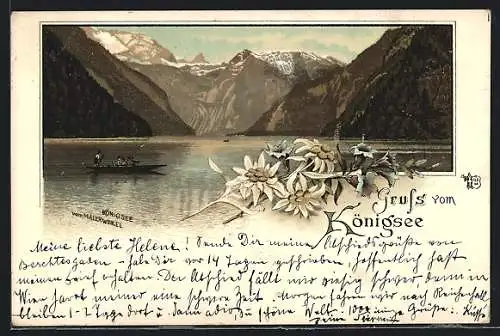 Gruß vom
Königsee
KÖNIGSEE
vom MALERWINKEL
Meine liebste Helene! Sende Dir meine Abschiedsgrüße von
Berchtesgaden - habe Dir vor 14 Tagen geschrieben, hoffentlich hast
meinen Brief erhalten. Der Abschied fällt mir riesig schwer, denn in
Wien harrt meiner eine schwere Zeit. Morgen fahren wir nach Reichenhall
bleiben 1-2 Tage dort u. dann adio Du schöne Welt. 1000 innige Grüße u. Küsse
Deine